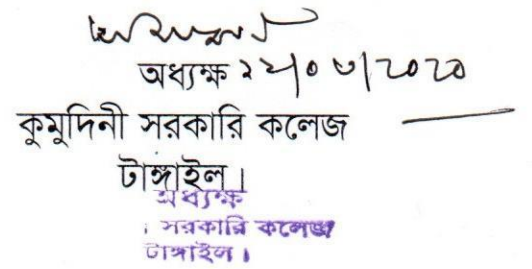 অধ্যক্ষ ২২/০৬/২০২০
কুমুদিনী সরকারি কলেজ
টাঙ্গাইল।
অধ্যক্ষ
। সরকারি কলেজ
টাঙ্গাইল।